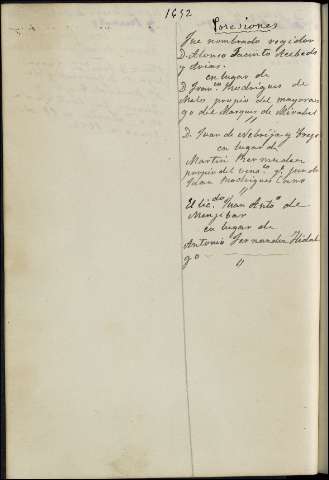 1652
Posesiones
Fue nombrado regidor
D. Alonso Jacinto Acebedo
y Arias.
en lugar de
D. Fran.co Rodrigues de
propio del mayoraz
go del Marques de
"
D. Juan de Nebrija y
en lugar de
Martin Bermudez
propio del y fue de
Juan Rodrigues Cano
"
El lic.do Juan Ant.o de
Menjibar
en lugar de
Antonio Fernandez Hidal
go
"